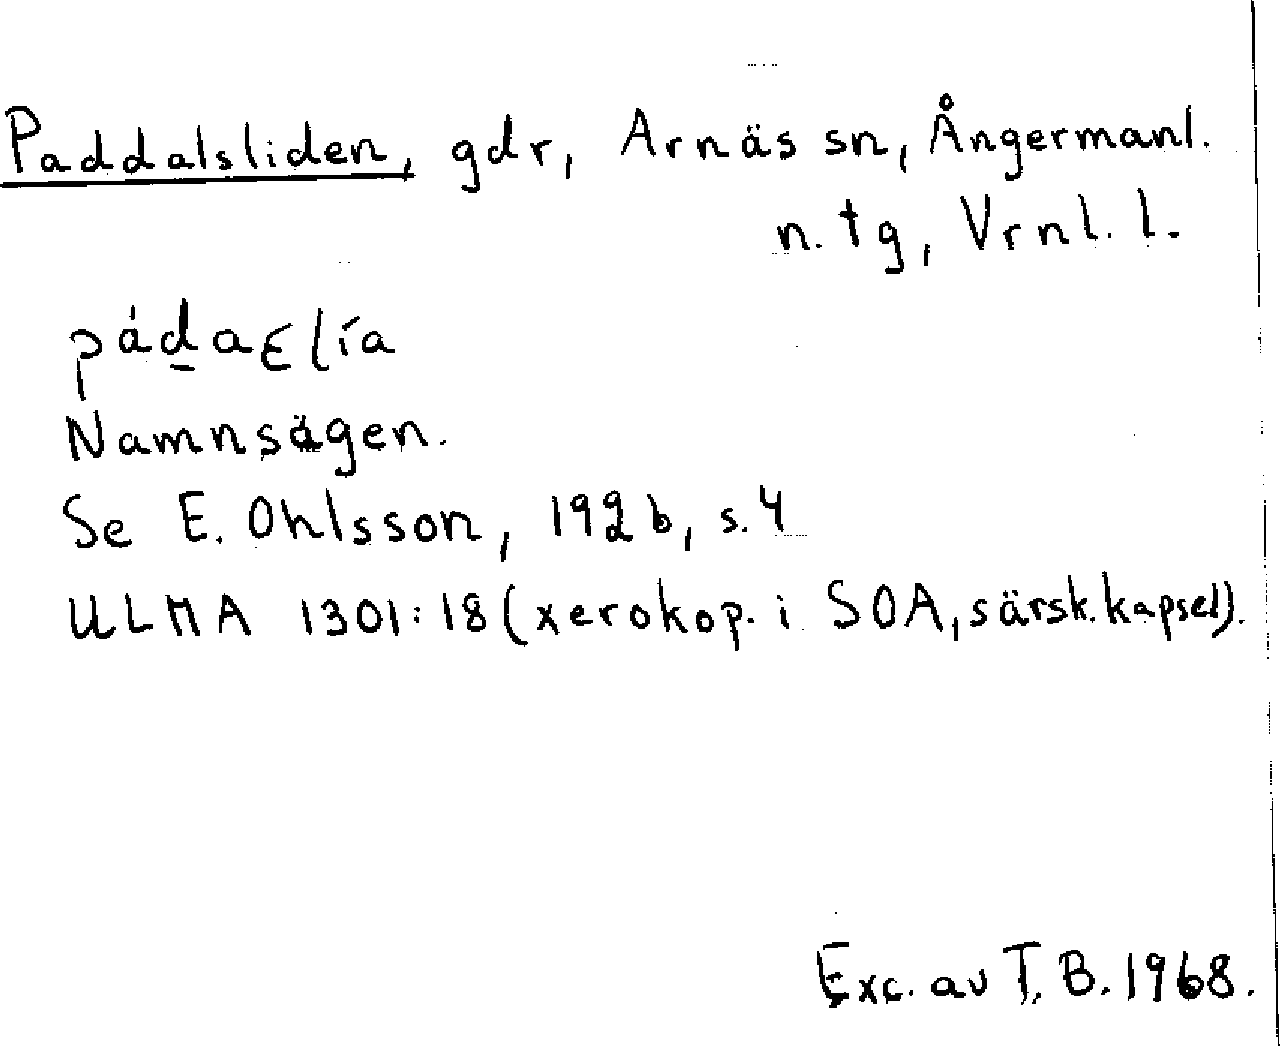 Paddalsliden, gdr, Arnäs sn, Ångermanl.
n. tg, Vrnl. l.
pád̲aɛlía
Namnsägen.
Se E. Ohlsson, 1926, s. 4
ULMA 1301:18 (xerokop. i SOA, särsk. kapsel).
Exc. av T. B. 1968.